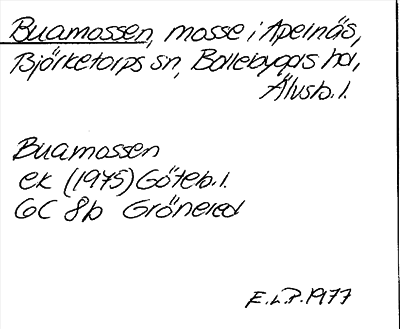 Buamossen, mosse i Apelnäs,
Björketorps sn, Bollebygds hd,
Älvsb. l.
Buamossen
ek (1975) Göteb. l.
GC 8b Grönered
E.L.P. 1977